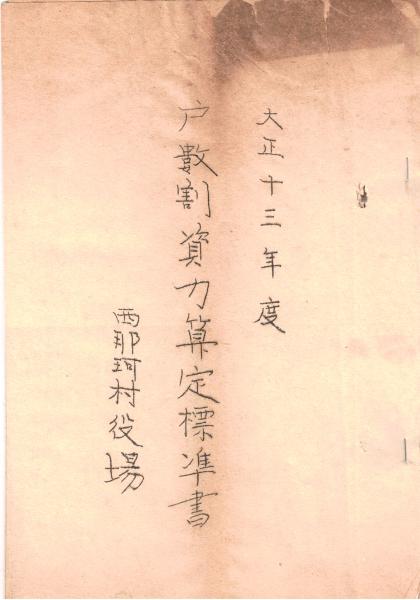 大正十三年度
戸數割資力算定標準書
西那珂村役場